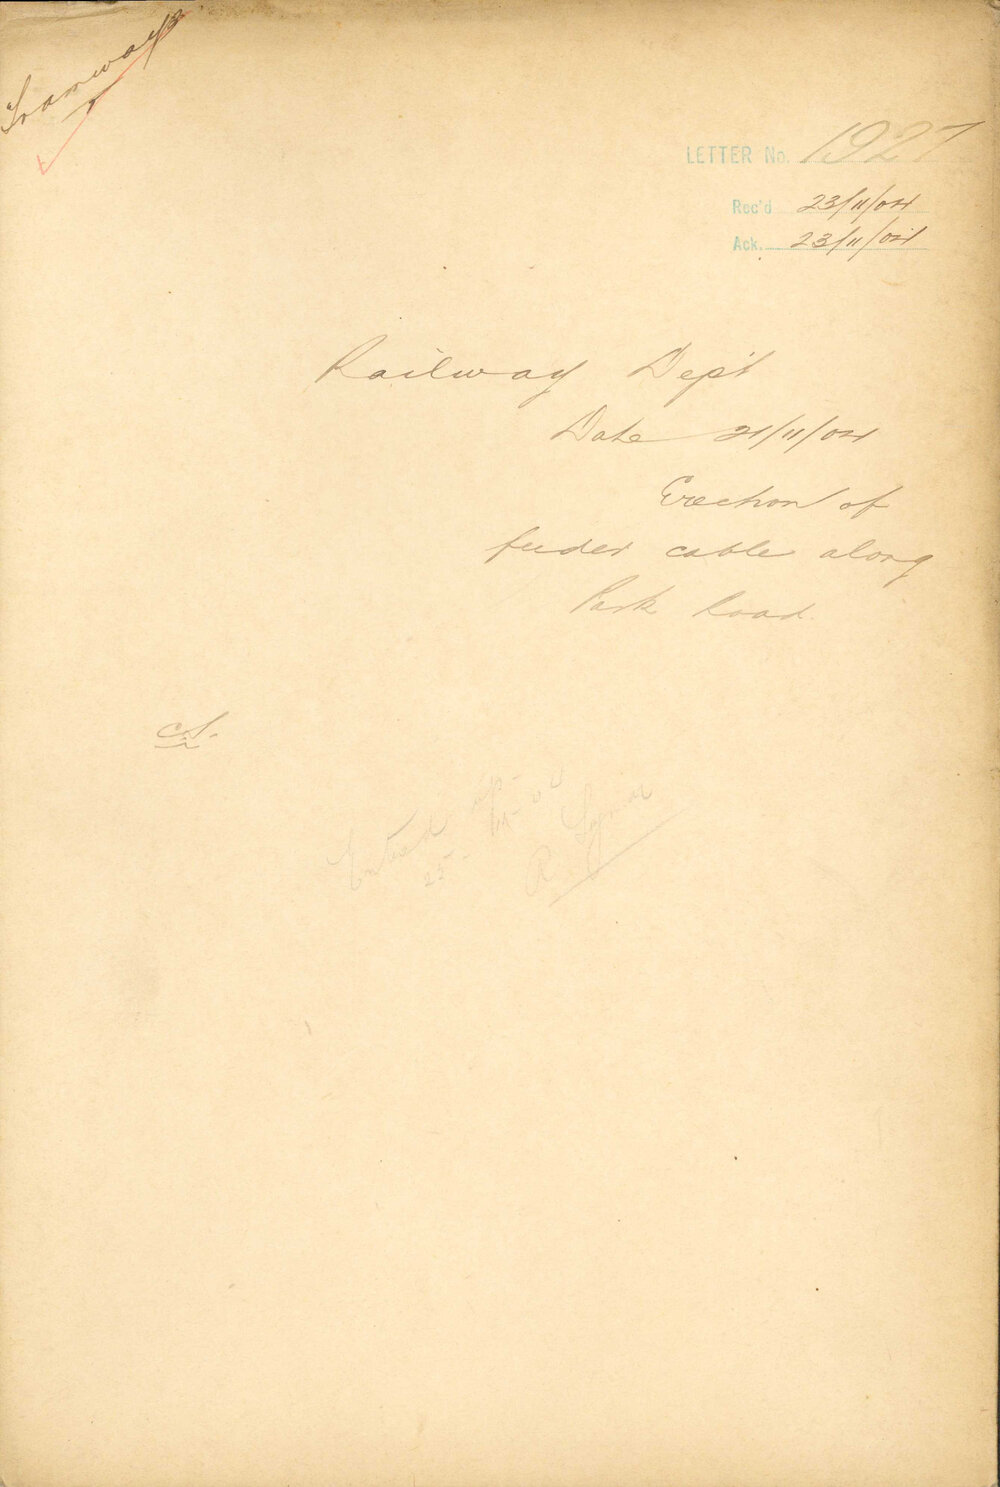 Tramways
LETTER No. 1927
Rec'd 23/11/04
Ack. 23/11/04
Railway Dep't
Date 21/11/04
Erection of
feeder cable along
Park Road.
Entered up
25-
R